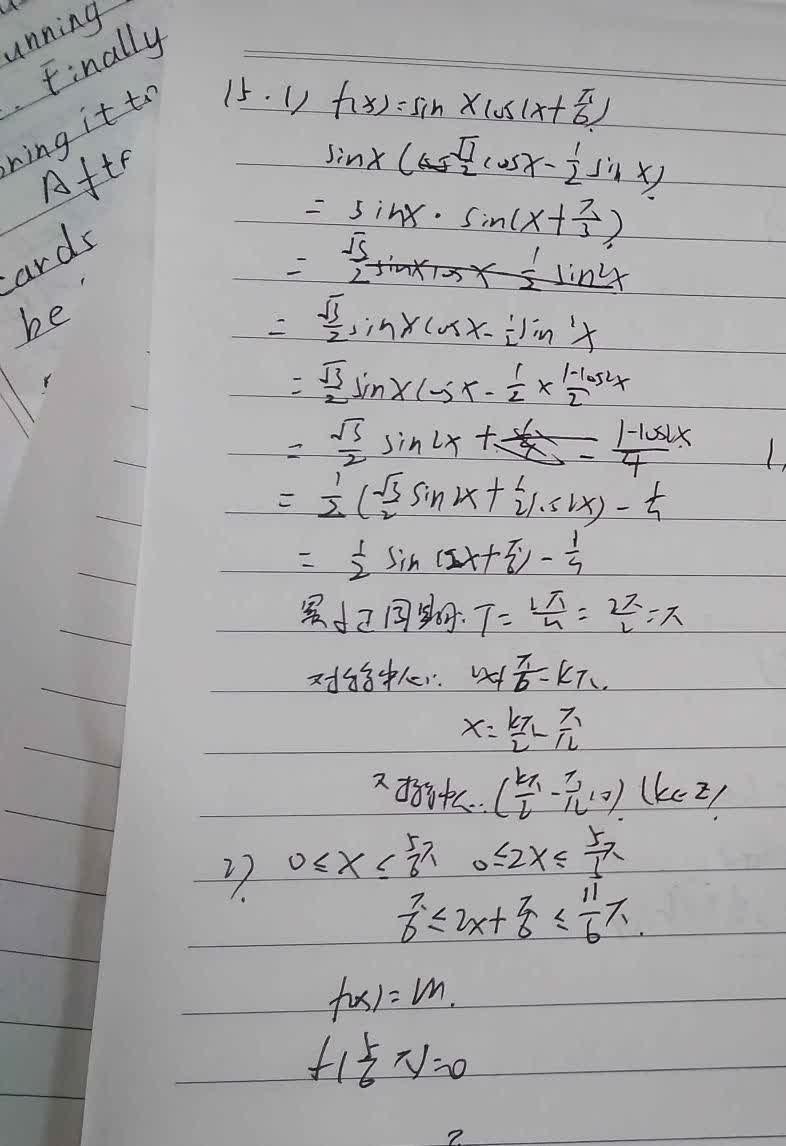 unning
Finally
oning it to
After
cards
be
15. 1) f(x)=sin x cos(x+π/6)
sinx (√3/2 cosx - 1/2 sin x)
= sinx · sin(x+π/3)
= √3/2 sinxcosx - 1/2 sin²x
= √3/2 sinxcosx - 1/2 sin²x
= √3/2 sinxcosx - 1/2 × (1-cos2x)/2
= √3/2 sin2x + - (1-cos2x)/4
= 1/2 (√3/2 sin2x + 1/2 cos2x) - 1/4
= 1/2 sin(2x+π/6) - 1/4
最小正周期: T = 2π/w = 2π/2 = π
对称中心: 2x+π/6 = kπ.
x = kπ/2 - π/12
对称中心: (kπ/2 - π/12, 0) (k∈Z)
2) 0≤x≤5/6π 0≤2x≤5/3π
π/6 ≤ 2x+π/6 ≤ 11/6π.
f(x)=m.
f(5/6π)=0